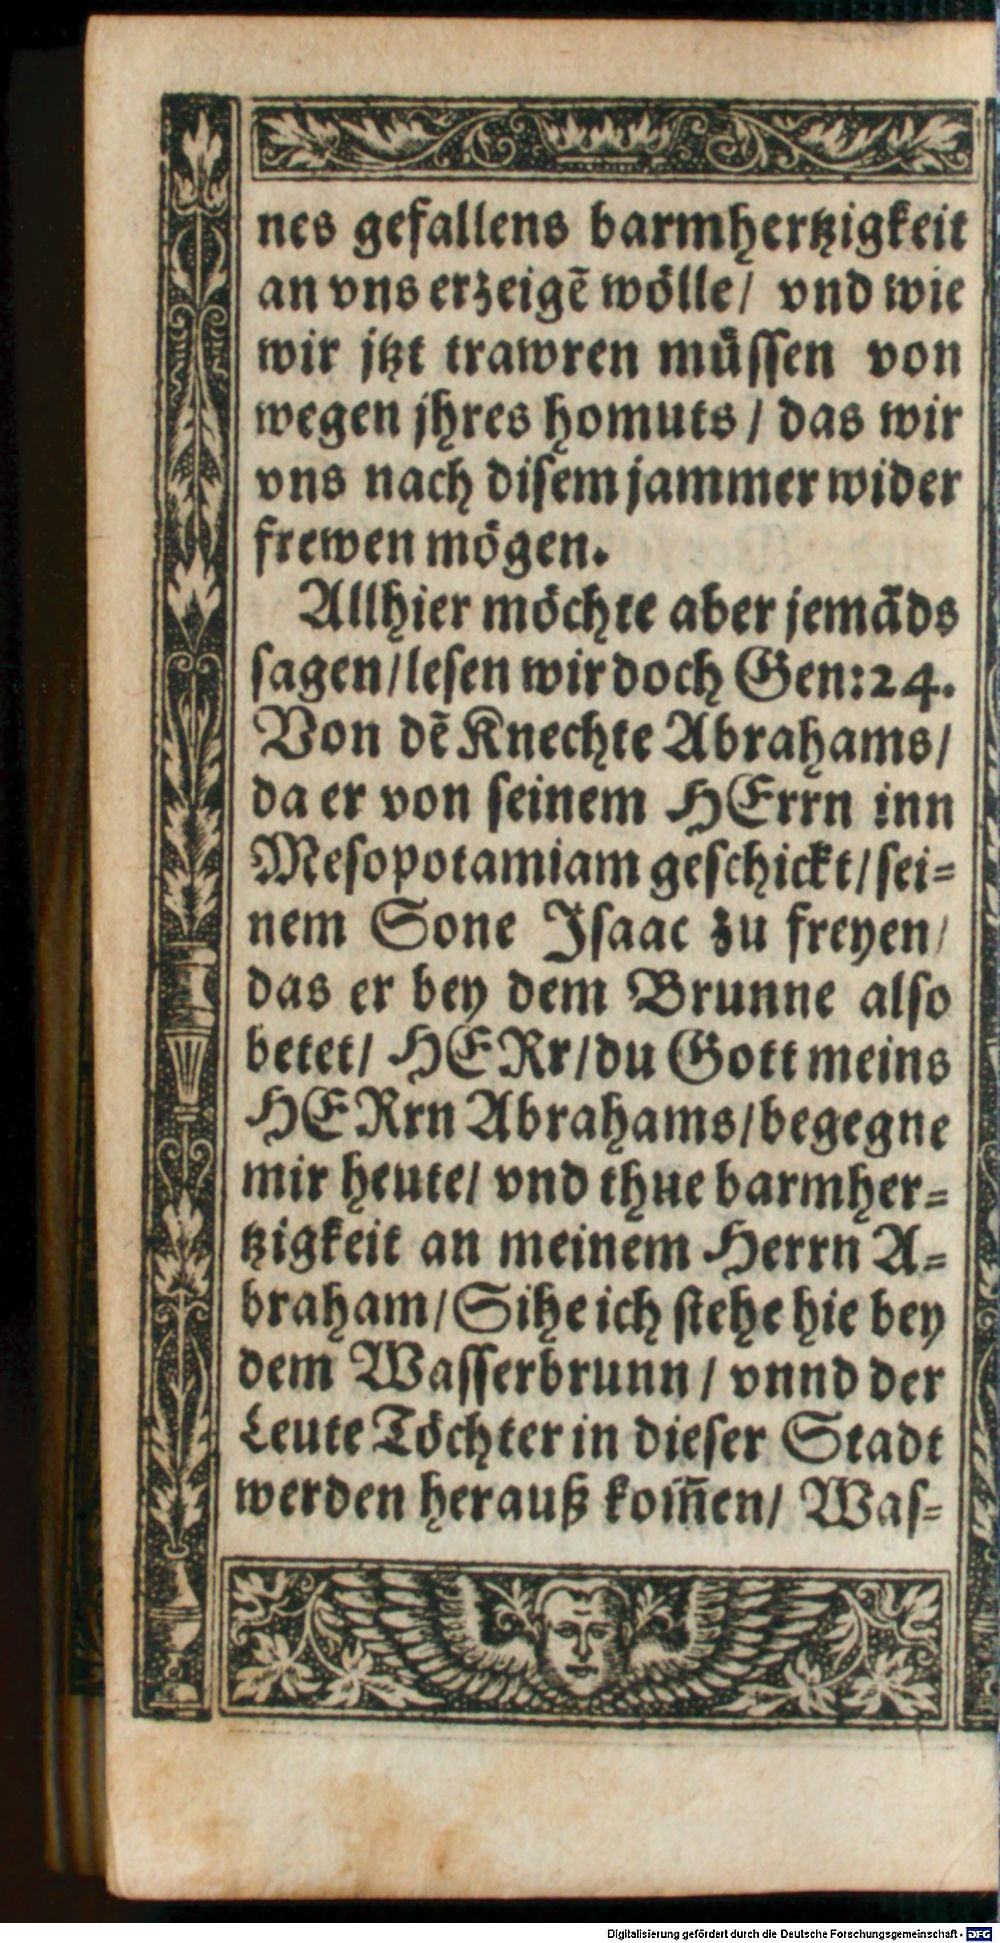 nes gefallens barmhertzigkeit
an vns erzeigẽ wölle/ vnd wie
wir jtzt trawren müssen von
wegen jhres homuts / das wir
vns nach disem jammer wider
frewen mögen.
Allhier möchte aber jemãds
sagen/lesen wir doch Gen:24.
Von dẽ Knechte Abrahams/
da er von seinem HErrn inn
Mesopotamiam geschickt/sei=
nem Sone Isaac zu freyen/
das er bey dem Brunne also
betet/ HERr/du Gott meins
HERrn Abrahams/begegne
mir heute/ vnd thue barmher=
tzigkeit an meinem Herrn A=
braham/Sihe ich stehe hie bey
dem Wasserbrunn / vnnd der
Leute Töchter in dieser Stadt
werden herauß kom̃en/ Was=
Digitalisierung gefördert durch die Deutsche Forschungsgemeinschaft - DFG